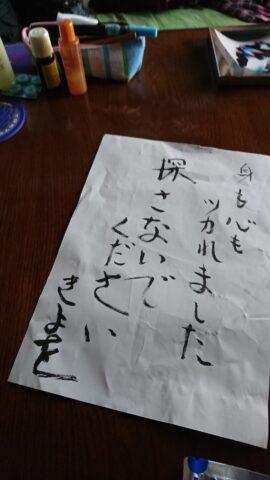 身も心も
ツカれました
探さないで
ください
きよを